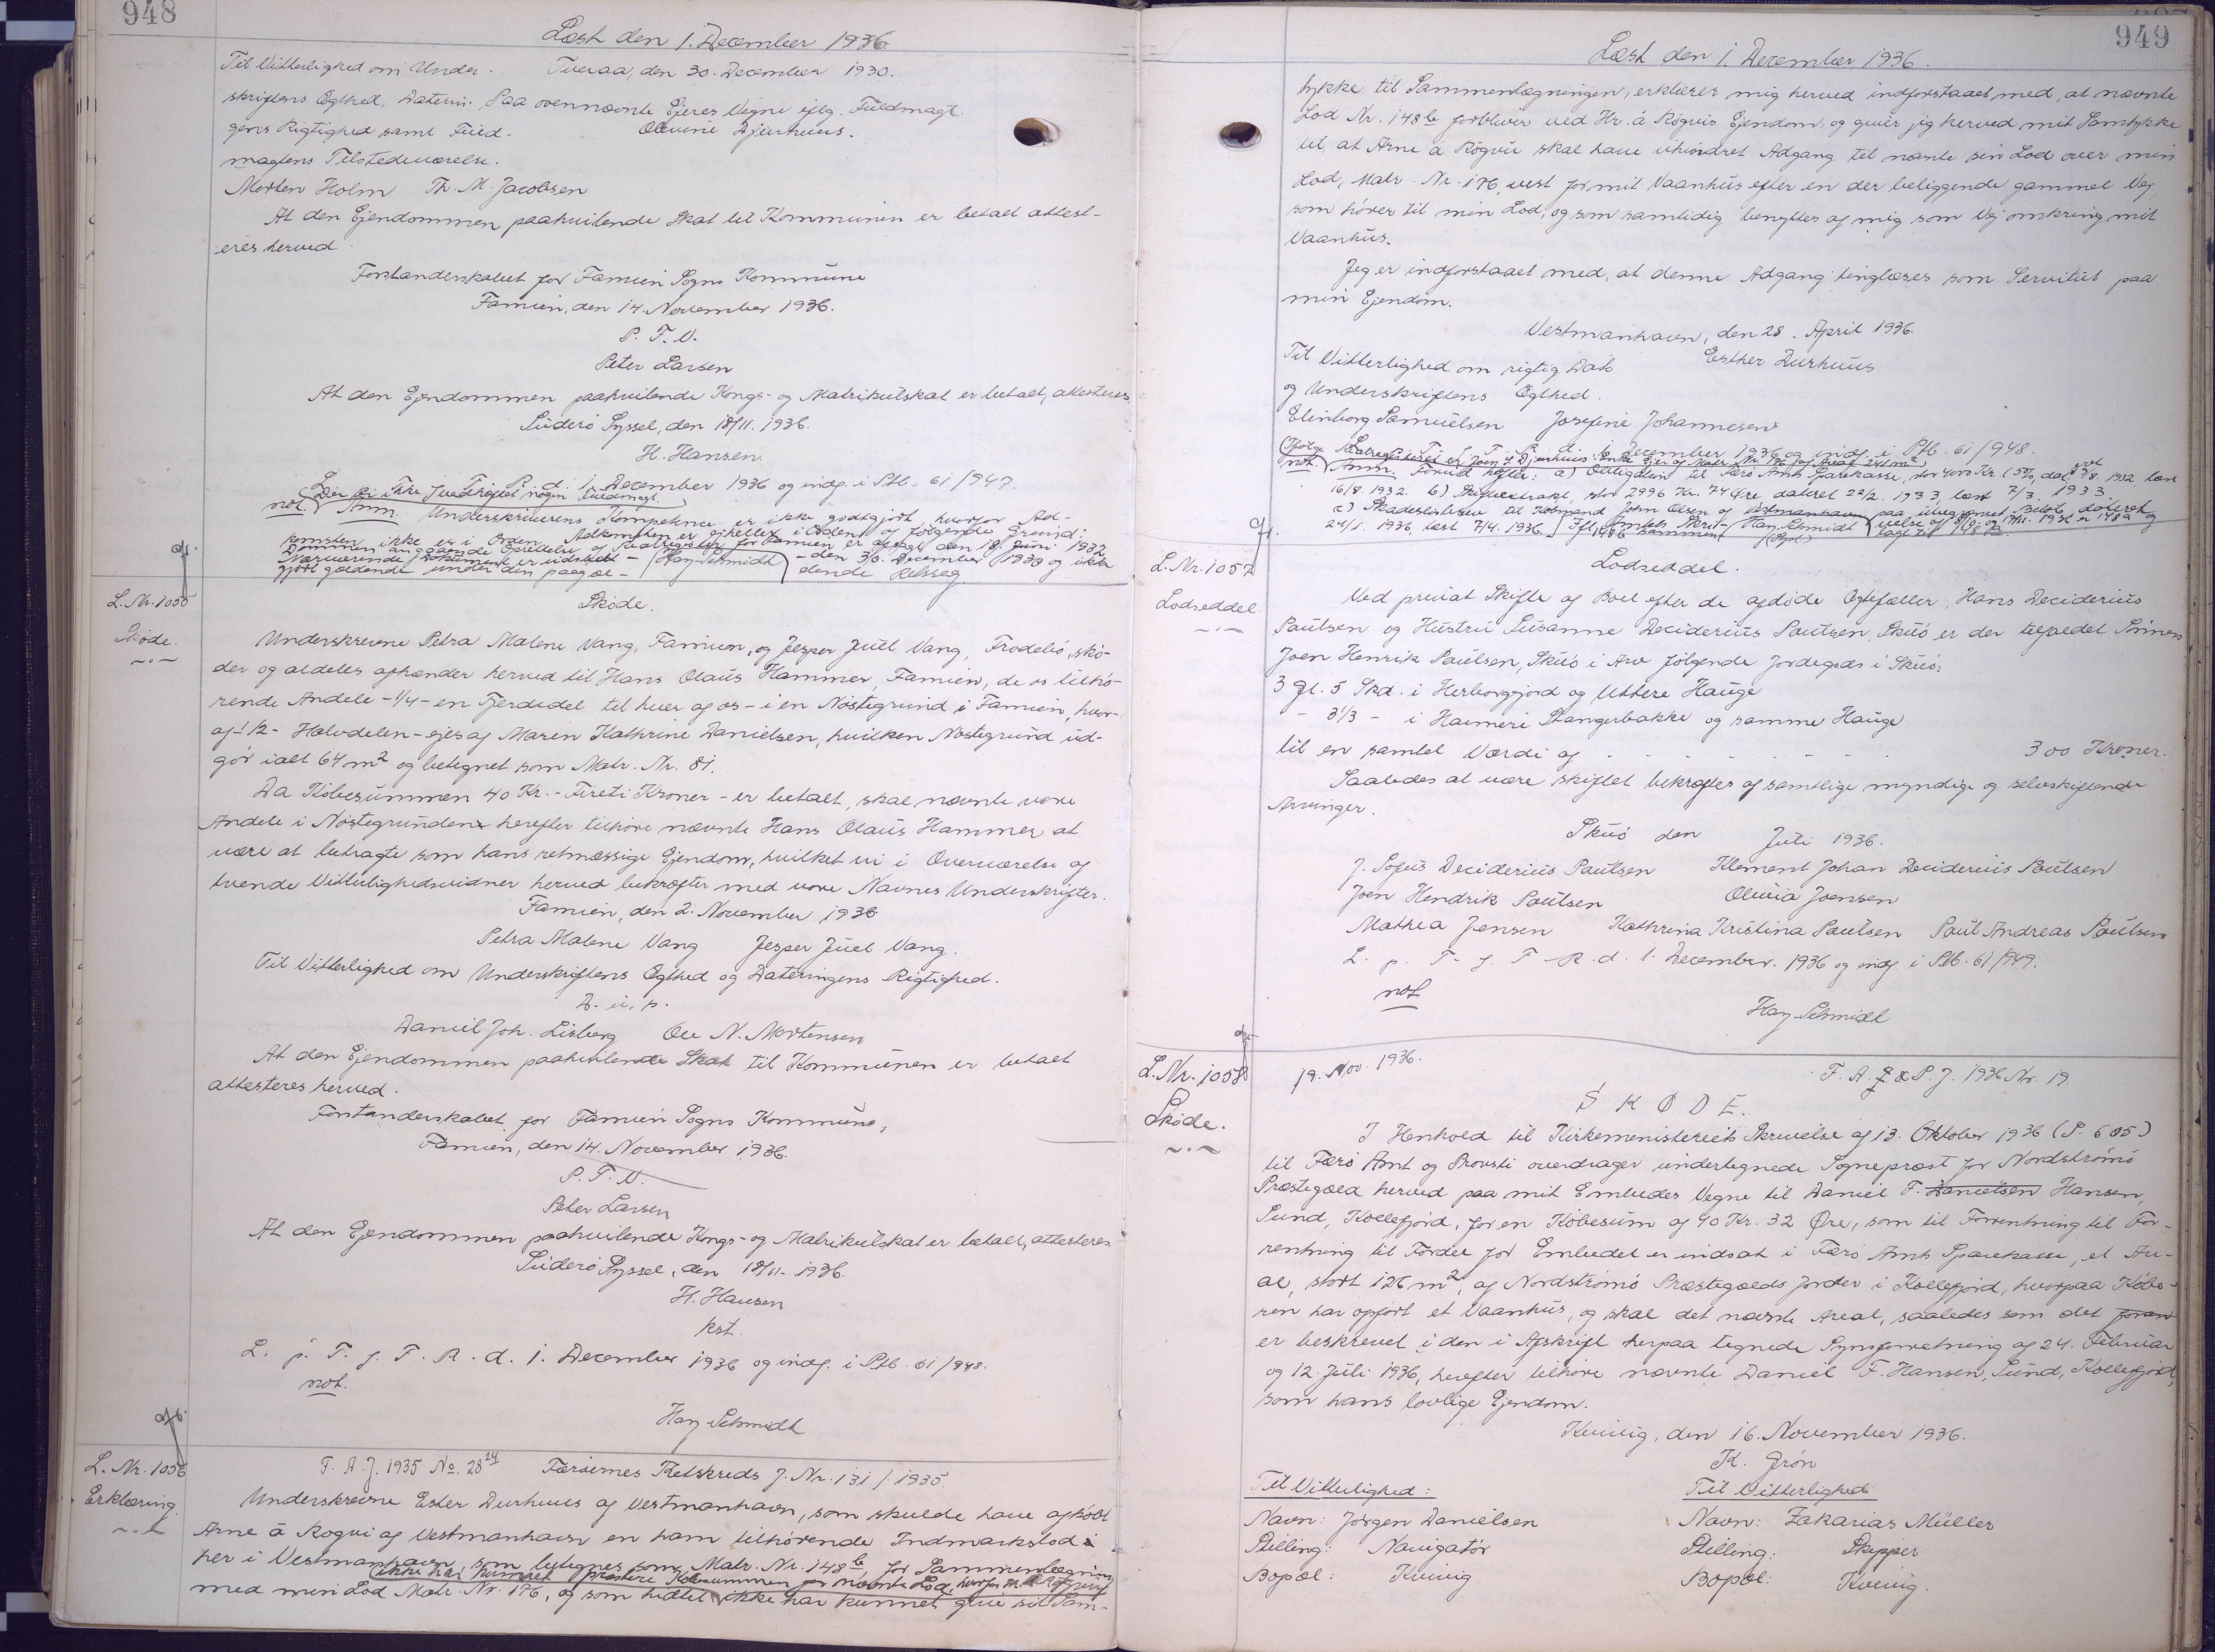 948
Læst den 1. December 1936
Til Vitterlighed om Under- Tveraa, den 30. December 1930.
skriftens Ægthed, Daterin- Paa ovennævnte Ejeres Vegne iflg. Fuldmagt
gens Rigtighed samt Fuld- Olevine Djurhuus.
magtens Tilstedeværelse.
Morten Holm Th. M. Jacobsen
At den Ejendommen paahvilende Skat til Kommunen er betalt attest-
eres herved.
Forstanderskabet for Famien Sogns Kommune
Famien, den 14. November 1936.
P. F. V.
Peter Larsen
At den Ejendommen paahvilende Kongs- og Matrikulskat er betalt, attesteres
Suderø Syssel, den 18/11. 1936.
H. Hansen.
L. p. T. f. F. R. d. 1. December 1936 og indf. i Ptb. 61/947.
Der er ikke vedhæftet nogen Fuldmagt.
not. Anm. Underskriverens Kompetence er ikke godtgjort hvorfor Ad-
komsten ikke er i Orden.
Nærværende Dokument er udstedt den 30. December 1930 og ikke
gjort gældende under den paagæl- Hay-Schmidt dende Retssag
afs.
L. Nr. 1055
Skøde.
Skøde.
Underskrevne Petra Malene Vang, Famien, og Jesper Juul Vang, Frodebø, skø-
der og aldeles afhænder herved til Hans Olaus Hammer, Famien, de os tilhø-
rende Andele - 1/4 - en Fjerdedel til hver af os - i en Nøstegrund i Famien, hvor-
af - 1/2 - Halvdelen - ejes af Maren Kathrine Danielsen, hvilken Nøstegrund ud-
gør ialt 64 m² og betegnet som Matr. Nr. 81.
Da Købesummen 40 Kr. - Fireti Kroner - er betalt, skal nævnte vore
Andele i Nøstegrunden herefter tilhøre nævnte Hans Olaus Hammer at
være at betragte som hans retmæssige Ejendom, hvilket vi i Overværelse af
tvende Vitterlighedsvidner herved bekræfter med vore Navnes Underskrifter.
Famien, den 2. November 1936
Petra Malene Vang Jesper Juul Vang.
Til Vitterlighed om Underskriftens Ægthed og Dateringens Rigtighed.
D. u. s.
Daniel Joh. Lisberg Ole N. Mortensen
At den Ejendommen paahvilende Skat til Kommunen er betalt
attesteres herved.
Forstanderskabet for Famien Sogns Kommune,
Famien, den 14. November 1936.
P. F. V.
Peter Larsen
At den Ejendommen paahvilende Kongs- og Matrikulskat er betalt, attesteres.
Suderø Syssel, den 18/11- 1936.
H. Hansen
kst.
L. p. T. f. F. R. d. 1. December 1936 og indf. i Ptb. 61/948.
not.
Hay-Schmidt
afs.
L. Nr. 1056
Erklæring.
F. A. J. 1935 No. 28 24 Færøernes Retskreds J. Nr. 131/1935.
Underskrevne Ester Durhuus af Vestmanhavn, som skulde have afkøbt
Arne á Rogvi af Vestmanhavn en ham tilhørende Indmarkslod
her i Vestmanhavn, som betegnes som Matr. Nr. 148 b, for Sammenlægning
ikke har kunnet præstere Købesummen for nævnte Lod, hvorfor
med min Lod Matr. Nr. 176, og som hidtil ikke har kunnet give sit Sam-
949
Læst den 1. December 1936.
tykke til Sammenlægningen, erklærer mig herved indforstaaet med, at nævnte
Lod Nr. 148 b forbliver ved Hr. á Røgvis Ejendom, og giver jeg herved mit Samtykke
til, at Arne á Røgvi skal have uhindret Adgang til nævnte sin Lod over min
Lod, Matr. Nr. 176, vest for mit Vaanhus efter en der beliggende gammel Vej
som hører til min Lod, og som samtidig benyttes af mig som Vej omkring mit
Vaanhus.
Jeg er indforstaaet med, at denne Adgang tinglæses som Servitut paa
min Ejendom.
Vestmanhavn, den 28. April 1936.
Til Vitterlighed om rigtig Dato Esther Durhuus
og Underskriftens Ægthed.
Elinborg Samuelsen Josefine Johannesen
L. p. T. f. F. R. d. 1. December 1936 og indf. i Ptb. 61/948.
not. Anm. Forud hæfter: a) Obligation til Færø Amts Sparekasse, stor 4000 Kr.
16/8. 1932. b) Skifteextrakt, stor 2996 Kr. 74 Øre dateret 22/2. 1933, læst 7/3. 1933.
c) Skadesløsbrev til Købmand John Olsen af Vestmanhavn paa ubegrænset Beløb, dateret
24/1. 1936, læst 7/4. 1936. Hay-Schmidt
afs.
L. Nr. 1057
Lodseddel.
Lodseddel.
Ved privat Skifte af Boet efter de afdøde Ægtefæller, Hans Deciderius
Paulsen og Hustru Susanne Deciderius Paulsen, Skuø er der tilfaldet Sønnen
Joen Henrik Paulsen, Skuø i Arv følgende Jordegods i Skuø:
3 Gl. 5 Skd. i Herborgsjord og Uttere Hauge
- 3 1/3 - i Haimeri Stangerbakke og samme Hauge
til en samlet Værdi af - - - - - - - 300 Kroner.
Saaledes at være skiftet bekræftes af samtlige myndige og selvskiftende
Arvinger.
Skuø den Juli 1936.
J. Sofus Deciderius Paulsen Klement Johan Deciderius Paulsen
Joen Hendrik Paulsen Oluvia Joensen
Mathea Jensen Kathrina Kristina Paulsen Poul Andreas Paulsen
L. p. T. f. F. R. d. 1. December. 1936 og indf. i Ptb. 61/949.
not.
Hay-Schmidt
afs.
L. Nr. 1058
Skøde.
19. Nov. 1936. F. A. & P. J. 1936 Nr. 19.
SKØDE.
I Henhold til Kirkeministeriets Skrivelse af 13. Oktober 1936 (P. 605)
til Færø Amt og Provsti overdrager undertegnede Sognepræst for Nordstrømø
Præstegæld herved paa mit Embedes Vegne til Daniel F. Danielsen Hansen,
Sund, Kollefjord, for en Købesum af 40 Kr. 32 Øre, som til Forrentning til For-
rentning til Fordel for Embedet er indsat i Færø Amts Sparekasse, et Are-
al, stort 126 m², af Nordstrømø Præstegælds Jorder i Kollefjord, hvorpaa Købe-
ren har opført et Vaanhus, og skal det nævnte Areal, saaledes som det foran
er beskrevet i den i Afskrift herpaa tegnede Synsforretning af 24. Februar
og 12. Juli 1936, herefter tilhøre nævnte Daniel F. Hansen, Sund, Kollefjord,
som hans lovlige Ejendom.
Kvivig, den 16. November 1936.
K. Grøn
Til Vitterlighed: Til Vitterlighed
Navn: Jørgen Danielsen Navn: Zakarias Müller
Stilling: Navigatør Stilling: Skipper
Bopæl: Kvivig Bopæl: Kvivig.